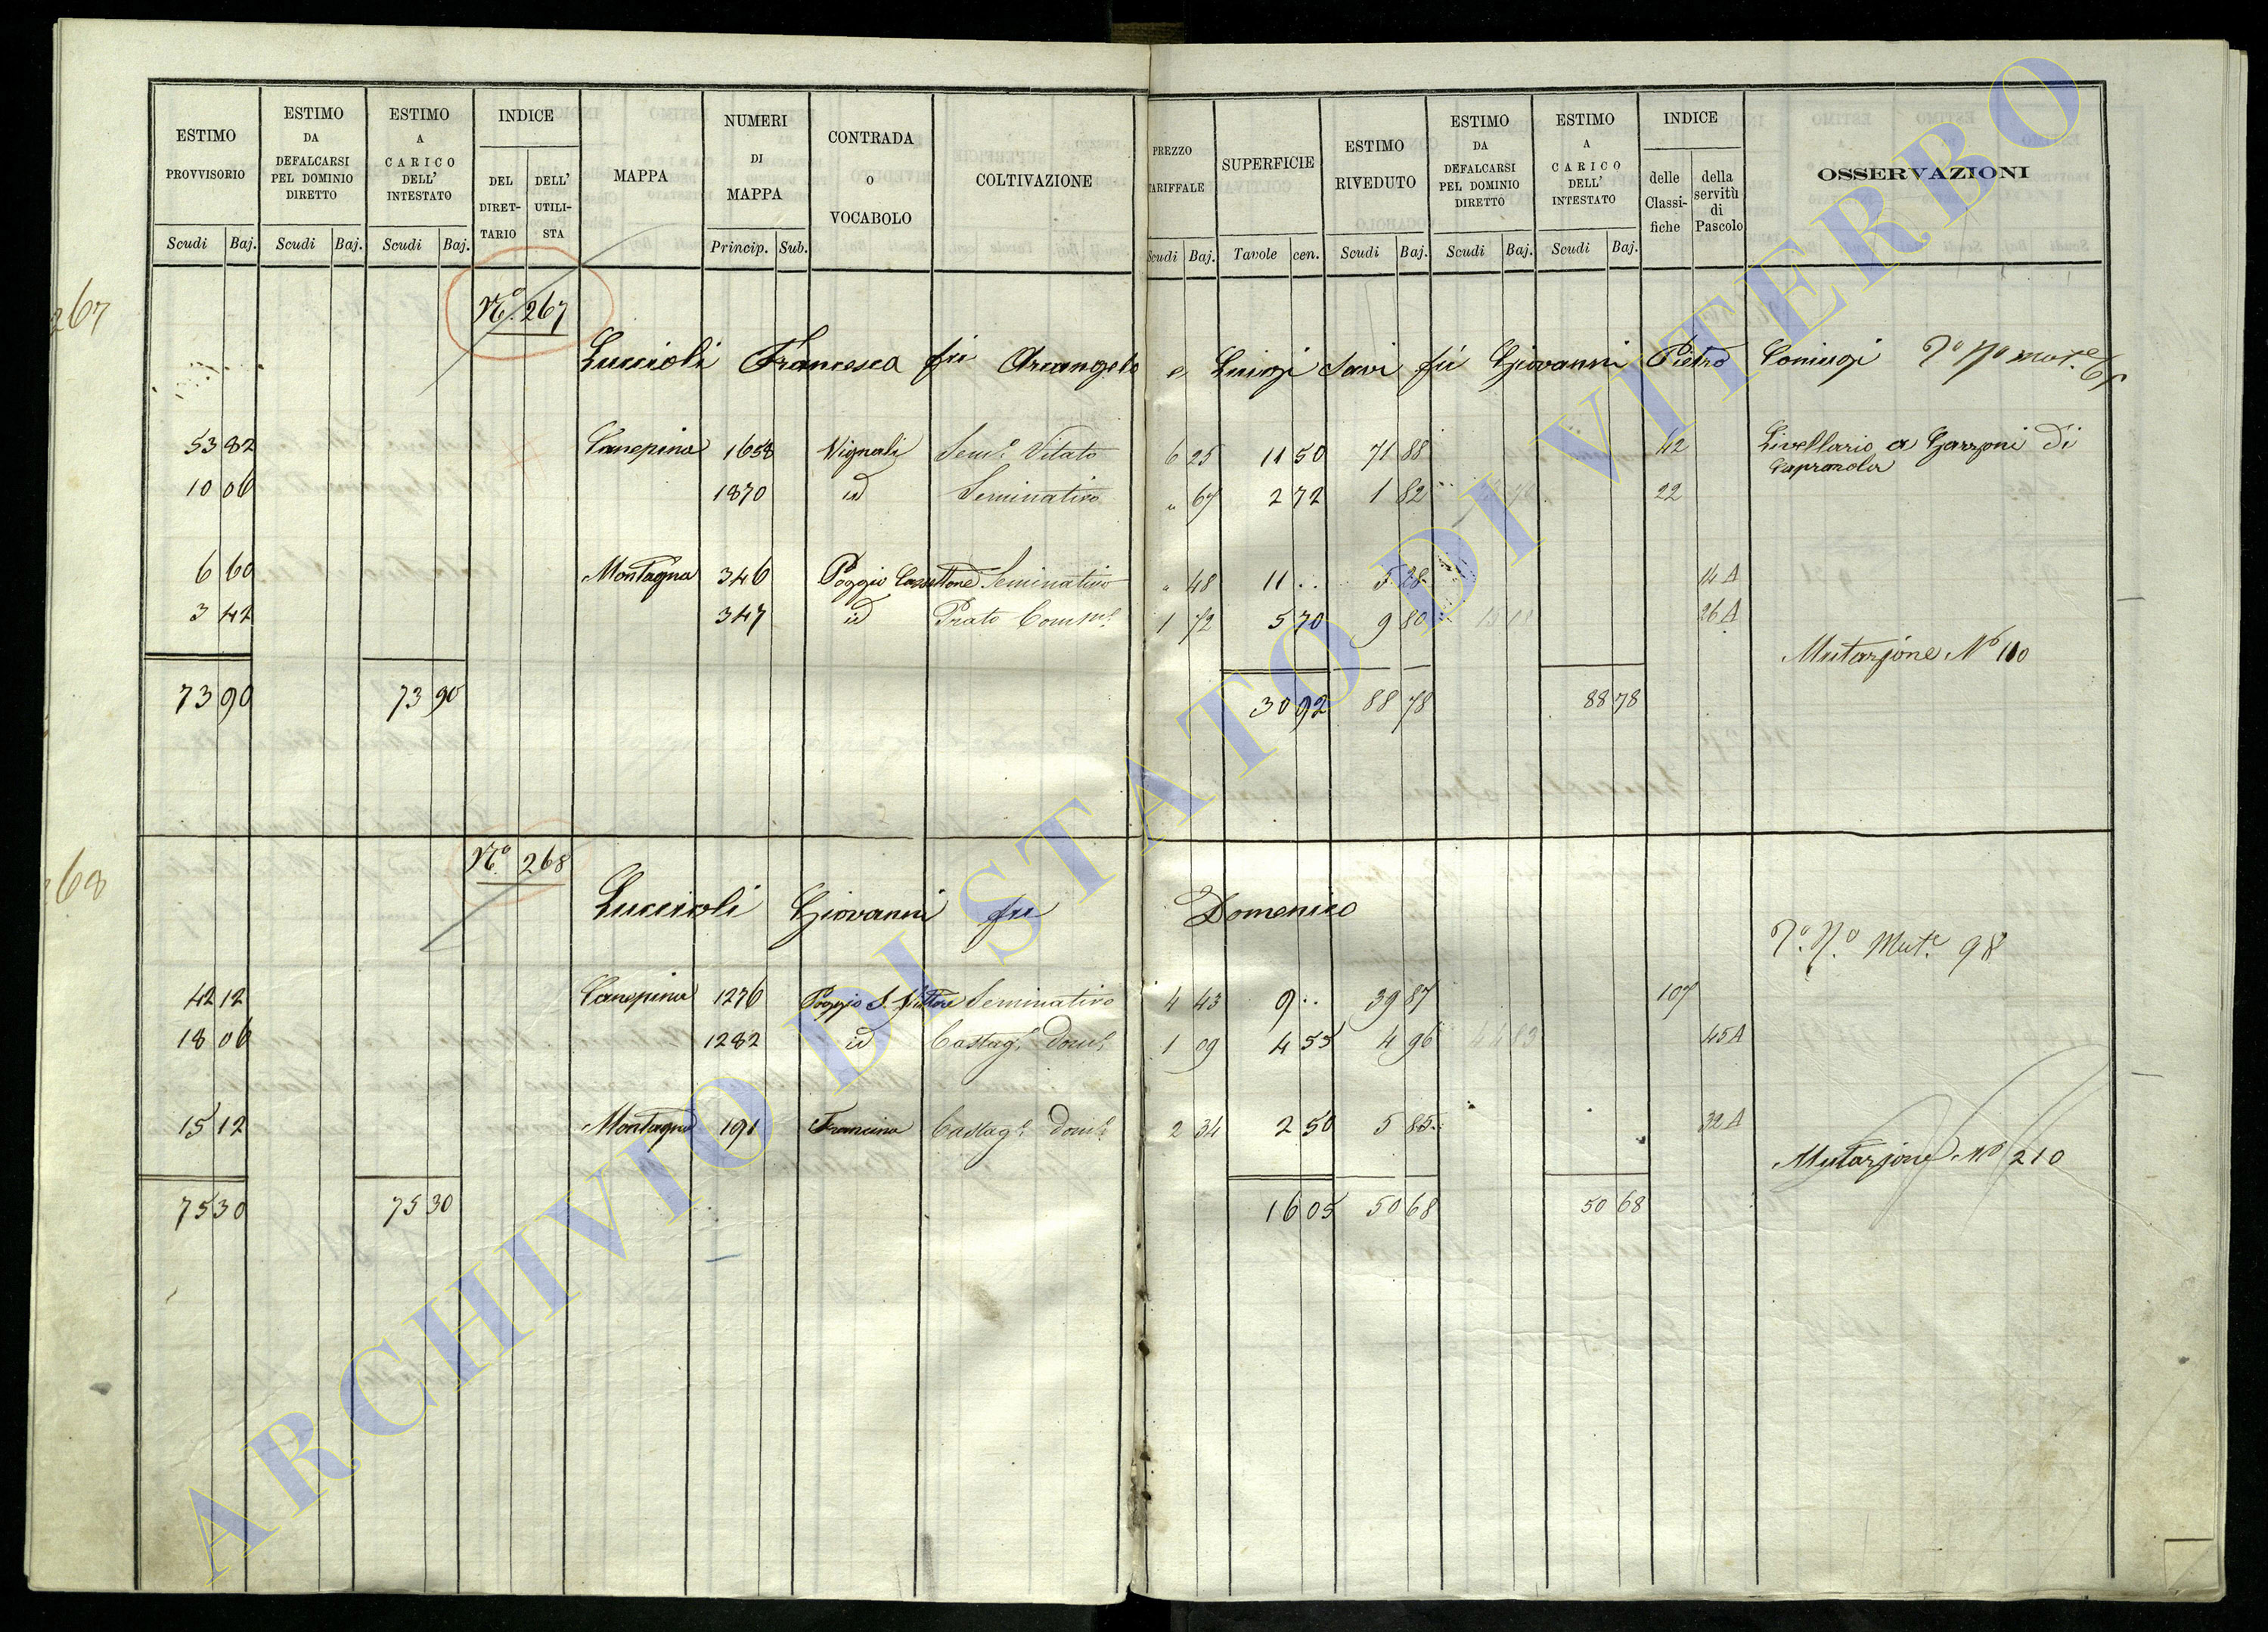 ESTIMO PROVVISORIO
ESTIMO DA DEFALCARSI PEL DOMINIO DIRETTO
ESTIMO A CARICO DELL' INTESTATO
INDICE
DEL DIRET-TARIO
DELL' UTILI-STA
MAPPA
NUMERI DI MAPPA
CONTRADA O VOCABOLO
COLTIVAZIONE
PREZZO TARIFFALE
SUPERFICIE
ESTIMO RIVEDUTO
ESTIMO DA DEFALCARSI PEL DOMINIO DIRETTO
ESTIMO A CARICO DELL' INTESTATO
INDICE
delle Classi-fiche
della servitù di Pascolo
OSSERVAZIONI
Scudi Baj. Scudi Baj. Scudi Baj. Princip. Sub. Scudi Baj. Tavole cen. Scudi Baj. Scudi Baj. Scudi Baj.
267
N.º 267
Luccioli Francesca fu Arcangelo e Luigi Savi fu Giovanni Pietro Coniugi
53 82 Canepina 1658 Vignali Sem.º Vitato 6 25 11 50 71 88 42 Livellario a Garzoni di Caprarola
10 06 1870 id Seminativo " 67 2 72 1 82 22
6 60 Montagna 346 Poggio Seminativo " 48 11 .. 5 28 14 A
3 42 347 id Prato 1 72 5 70 9 80 26 A
Mutazione Nº 110
73 90 73 90 30 92 88 78 88 78
268
N.º 268
Luccioli Giovanni fu Domenico
Mut.e 98
42 12 Canepina 1276 Poggio S. Vittore Seminativo 4 43 9 .. 39 87 107
18 06 1282 id Castag.º Dom.º 1 09 4 55 4 96 45 A
15 12 Montagna 191 Francina Castag.º Dom.º 2 34 2 50 5 85 32 A
Mutazione Nº 210
75 30 75 30 16 05 50 68 50 68
ARCHIVIO DI STATO DI VITERBO